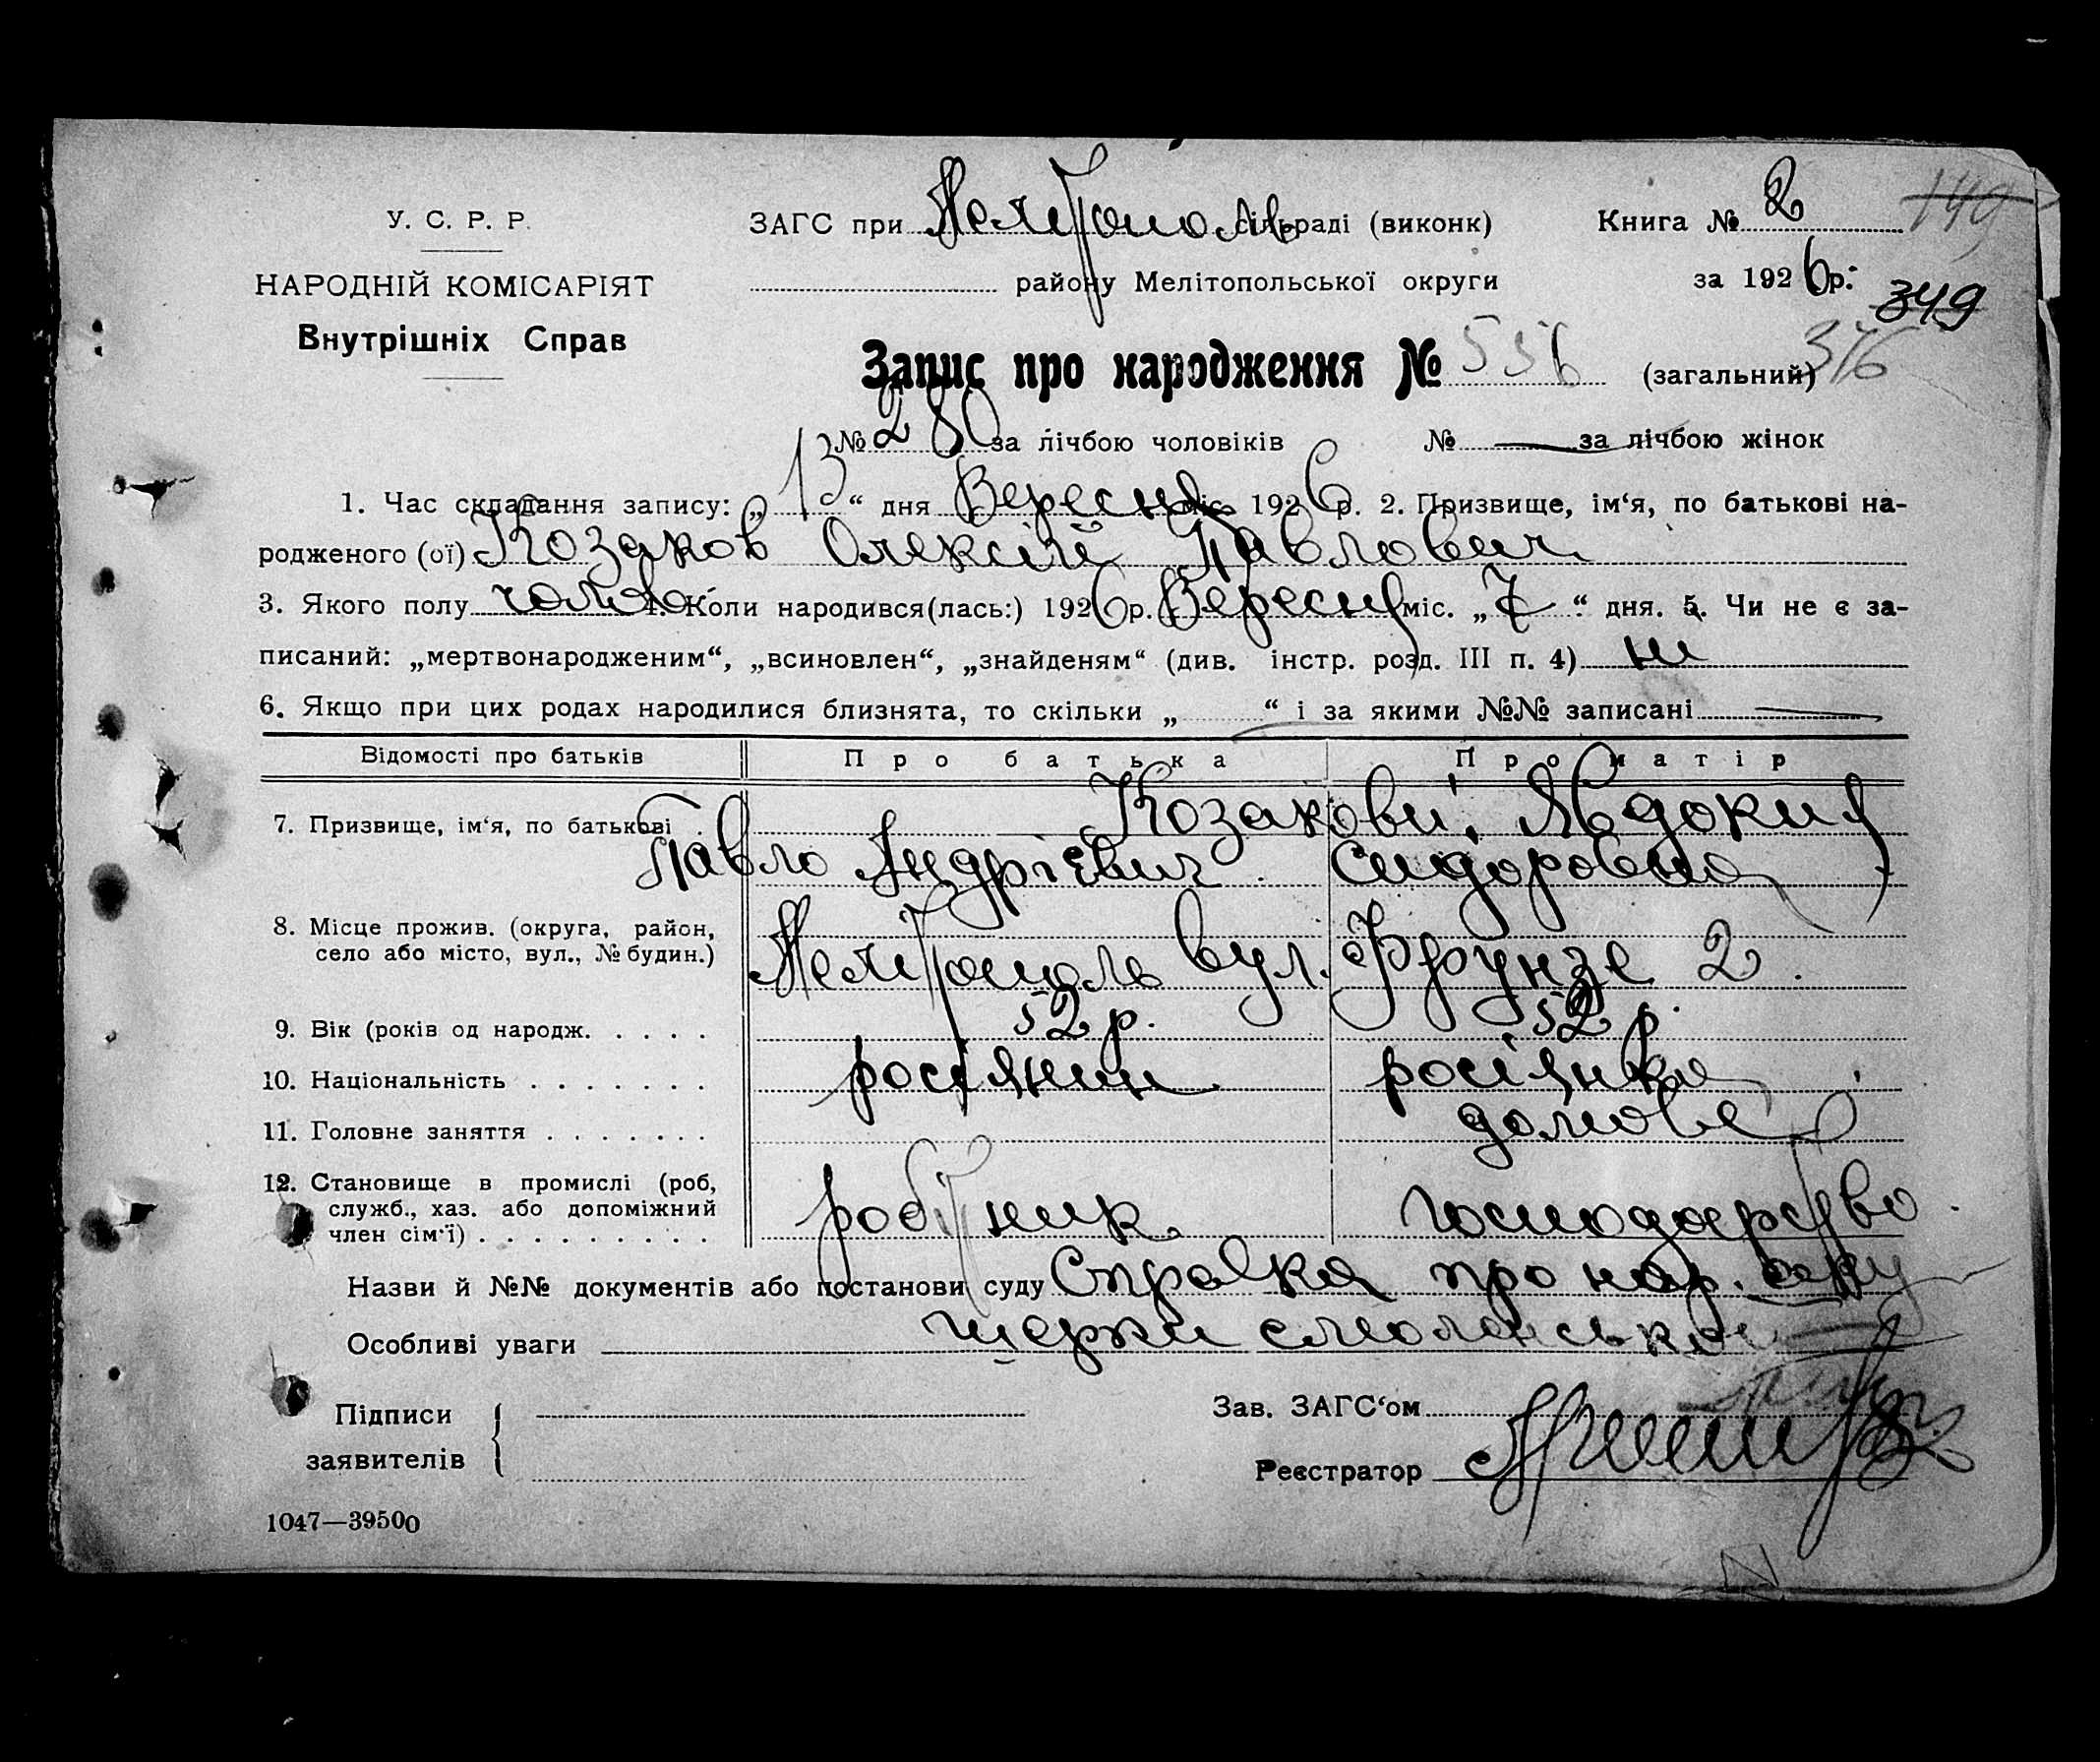 У. С. Р. Р.
НАРОДНІЙ КОМІСАРІЯТ
Внутрішніх Справ
ЗАГС при Мелітополь сільраді (виконк)
району Мелітопольської округи
Книга № 2
149
за 1926 р.
349
Запис про народження № 536 (загальний) 376
№ 280 за лічбою чоловіків № — за лічбою жінок
1. Час складання запису: „13“ дня Вересня міс. 1926 р. 2. Призвище, ім‘я, по батькові на-
родженого (ої) Козаков Олексій Павлович
3. Якого полу чолов. 4. Коли народився(лась:) 1926 р. Вересня міс. „7“ дня. 5. Чи не є за-
писаний: „мертвонародженим“, „всиновлен“, „знайденям“ (див. інстр. розд. III п. 4) ні
6. Якщо при цих родах народилися близнята, то скільки „ “ і за якими №№ записані —
Відомості про батьків Про батька Про матір
7. Призвище, ім‘я, по батькові Козакови, Явдокия
Павло Андрієвич Сидоровна
8. Місце прожив. (округа, район,
село або місто, вул., № будин.) Мелітополь вул. Фрунзе 2.
9. Вік (років од народж. . . . . 52 р. 52 р.
10. Національність . . . . . . . росіянин росіянка
11. Головне заняття . . . . . . . домове
12. Становище в промислі (роб,
служб., хаз. або допоміжний
член сім‘ї) . . . . . . . . . робітник господарство.
Назви й №№ документів або постанови суду Справка про нар. аку
Особливі уваги шерки смоленської
Підписи
заявителів
Зав. ЗАГС‘ом
Реєстратор
1047—39500